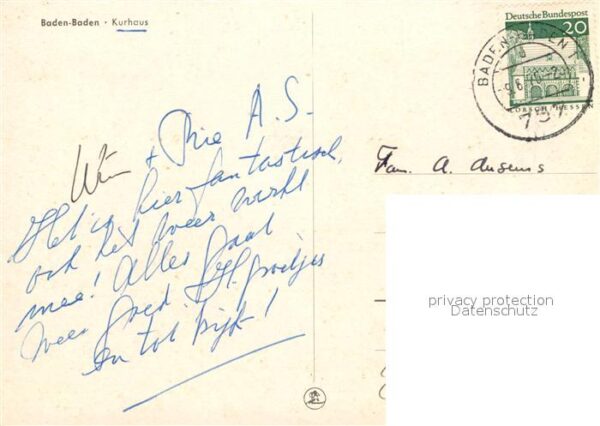 Baden-Baden · Kurhaus
Deutsche Bundespost
20
LORSCH/HESSEN
BADEN-BADEN 1
757
Wim + Mia A.S.
Het is hier fantastisch,
ook het weer werkt
mee! Alles gaat
weer goed. H. groetjes
en tot kijk!
Fam. A.
privacy protection
Datenschutz